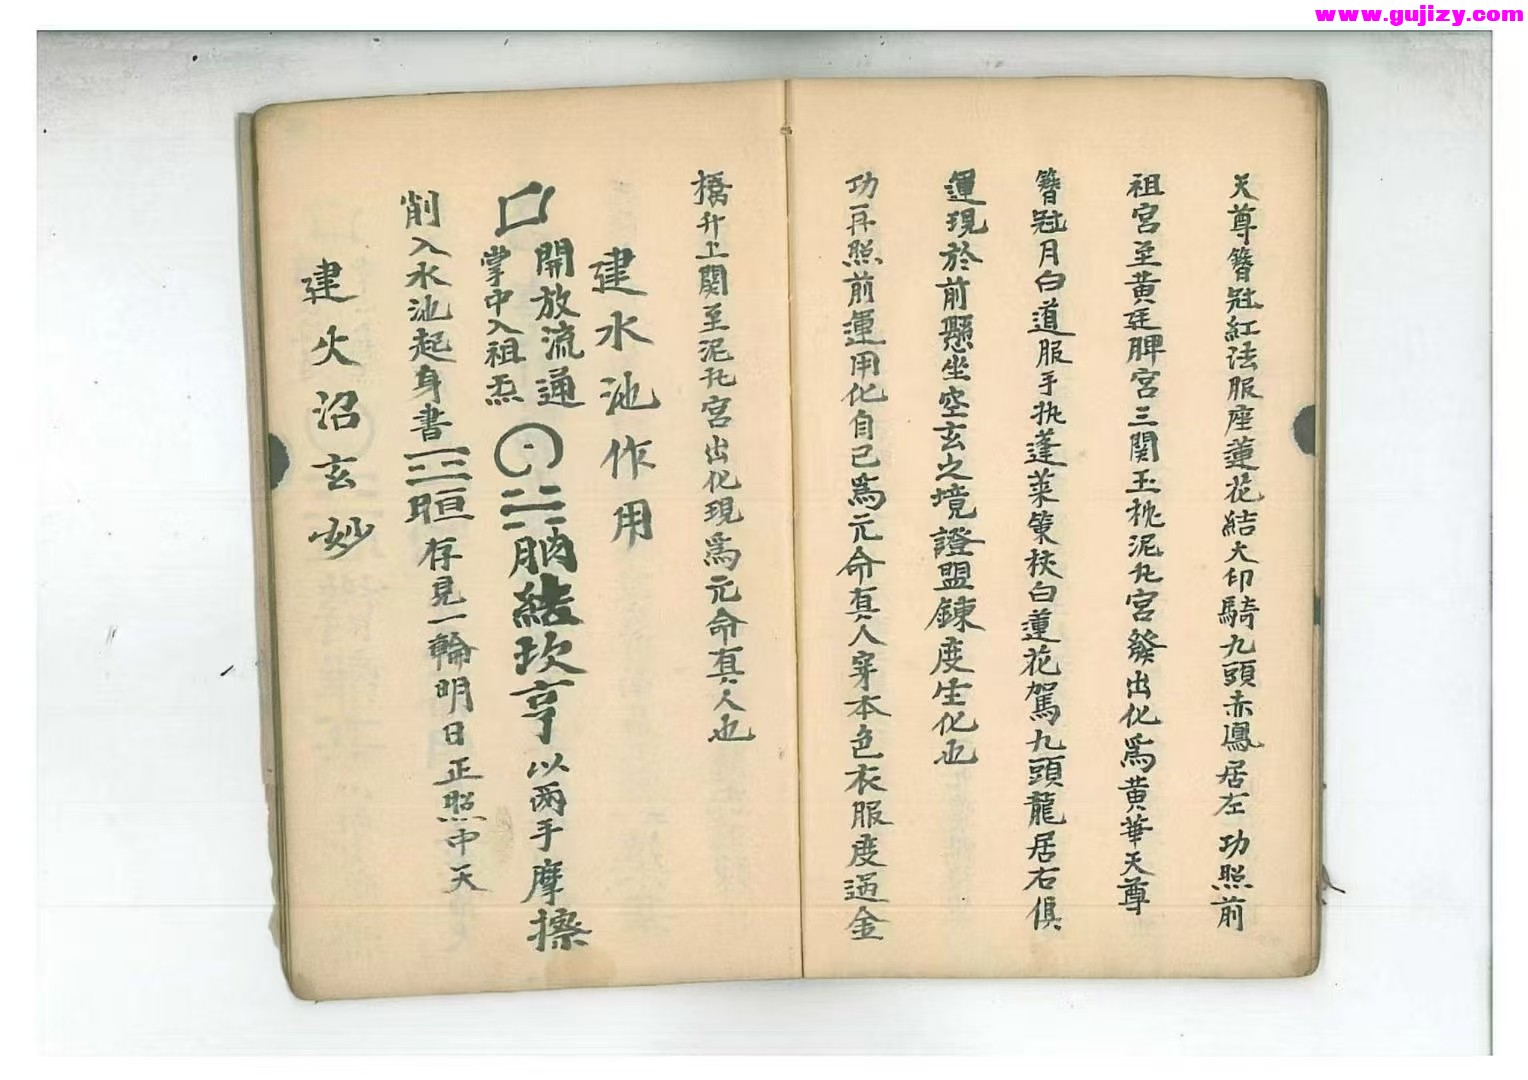 www.gujizy.com
天尊簪冠紅法服座蓮花結大印騎九頭赤鳳居左功照前
祖宮至黃廷脾宮三関玉枕泥丸宮發出化爲黃華天尊
簪冠月白道服手执蓬萊策枝白蓮花駕九頭龍居右俱
運現於前懸坐空玄之境證盟鍊度生化也
功再照前運用化自己爲元命真人穿本色衣服度過金
橋升上関至泥丸宮出化現爲元命真人也
建水池作用
口開放流通
掌中入祖炁
結坎亨以兩手摩擦
削入水池起身書
存見一輪明日正照中天
建火沼玄妙